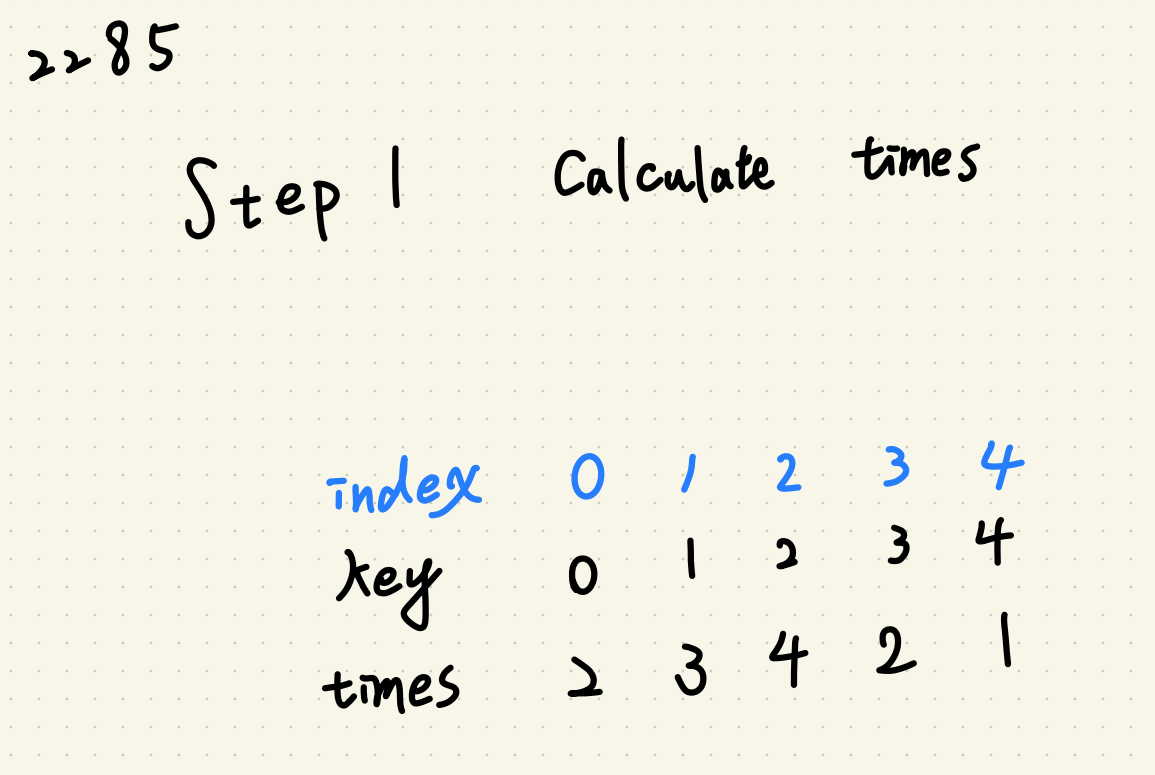 2285
Step 1 Calculate times
index 0 1 2 3 4
key 0 1 2 3 4
times 2 3 4 2 1